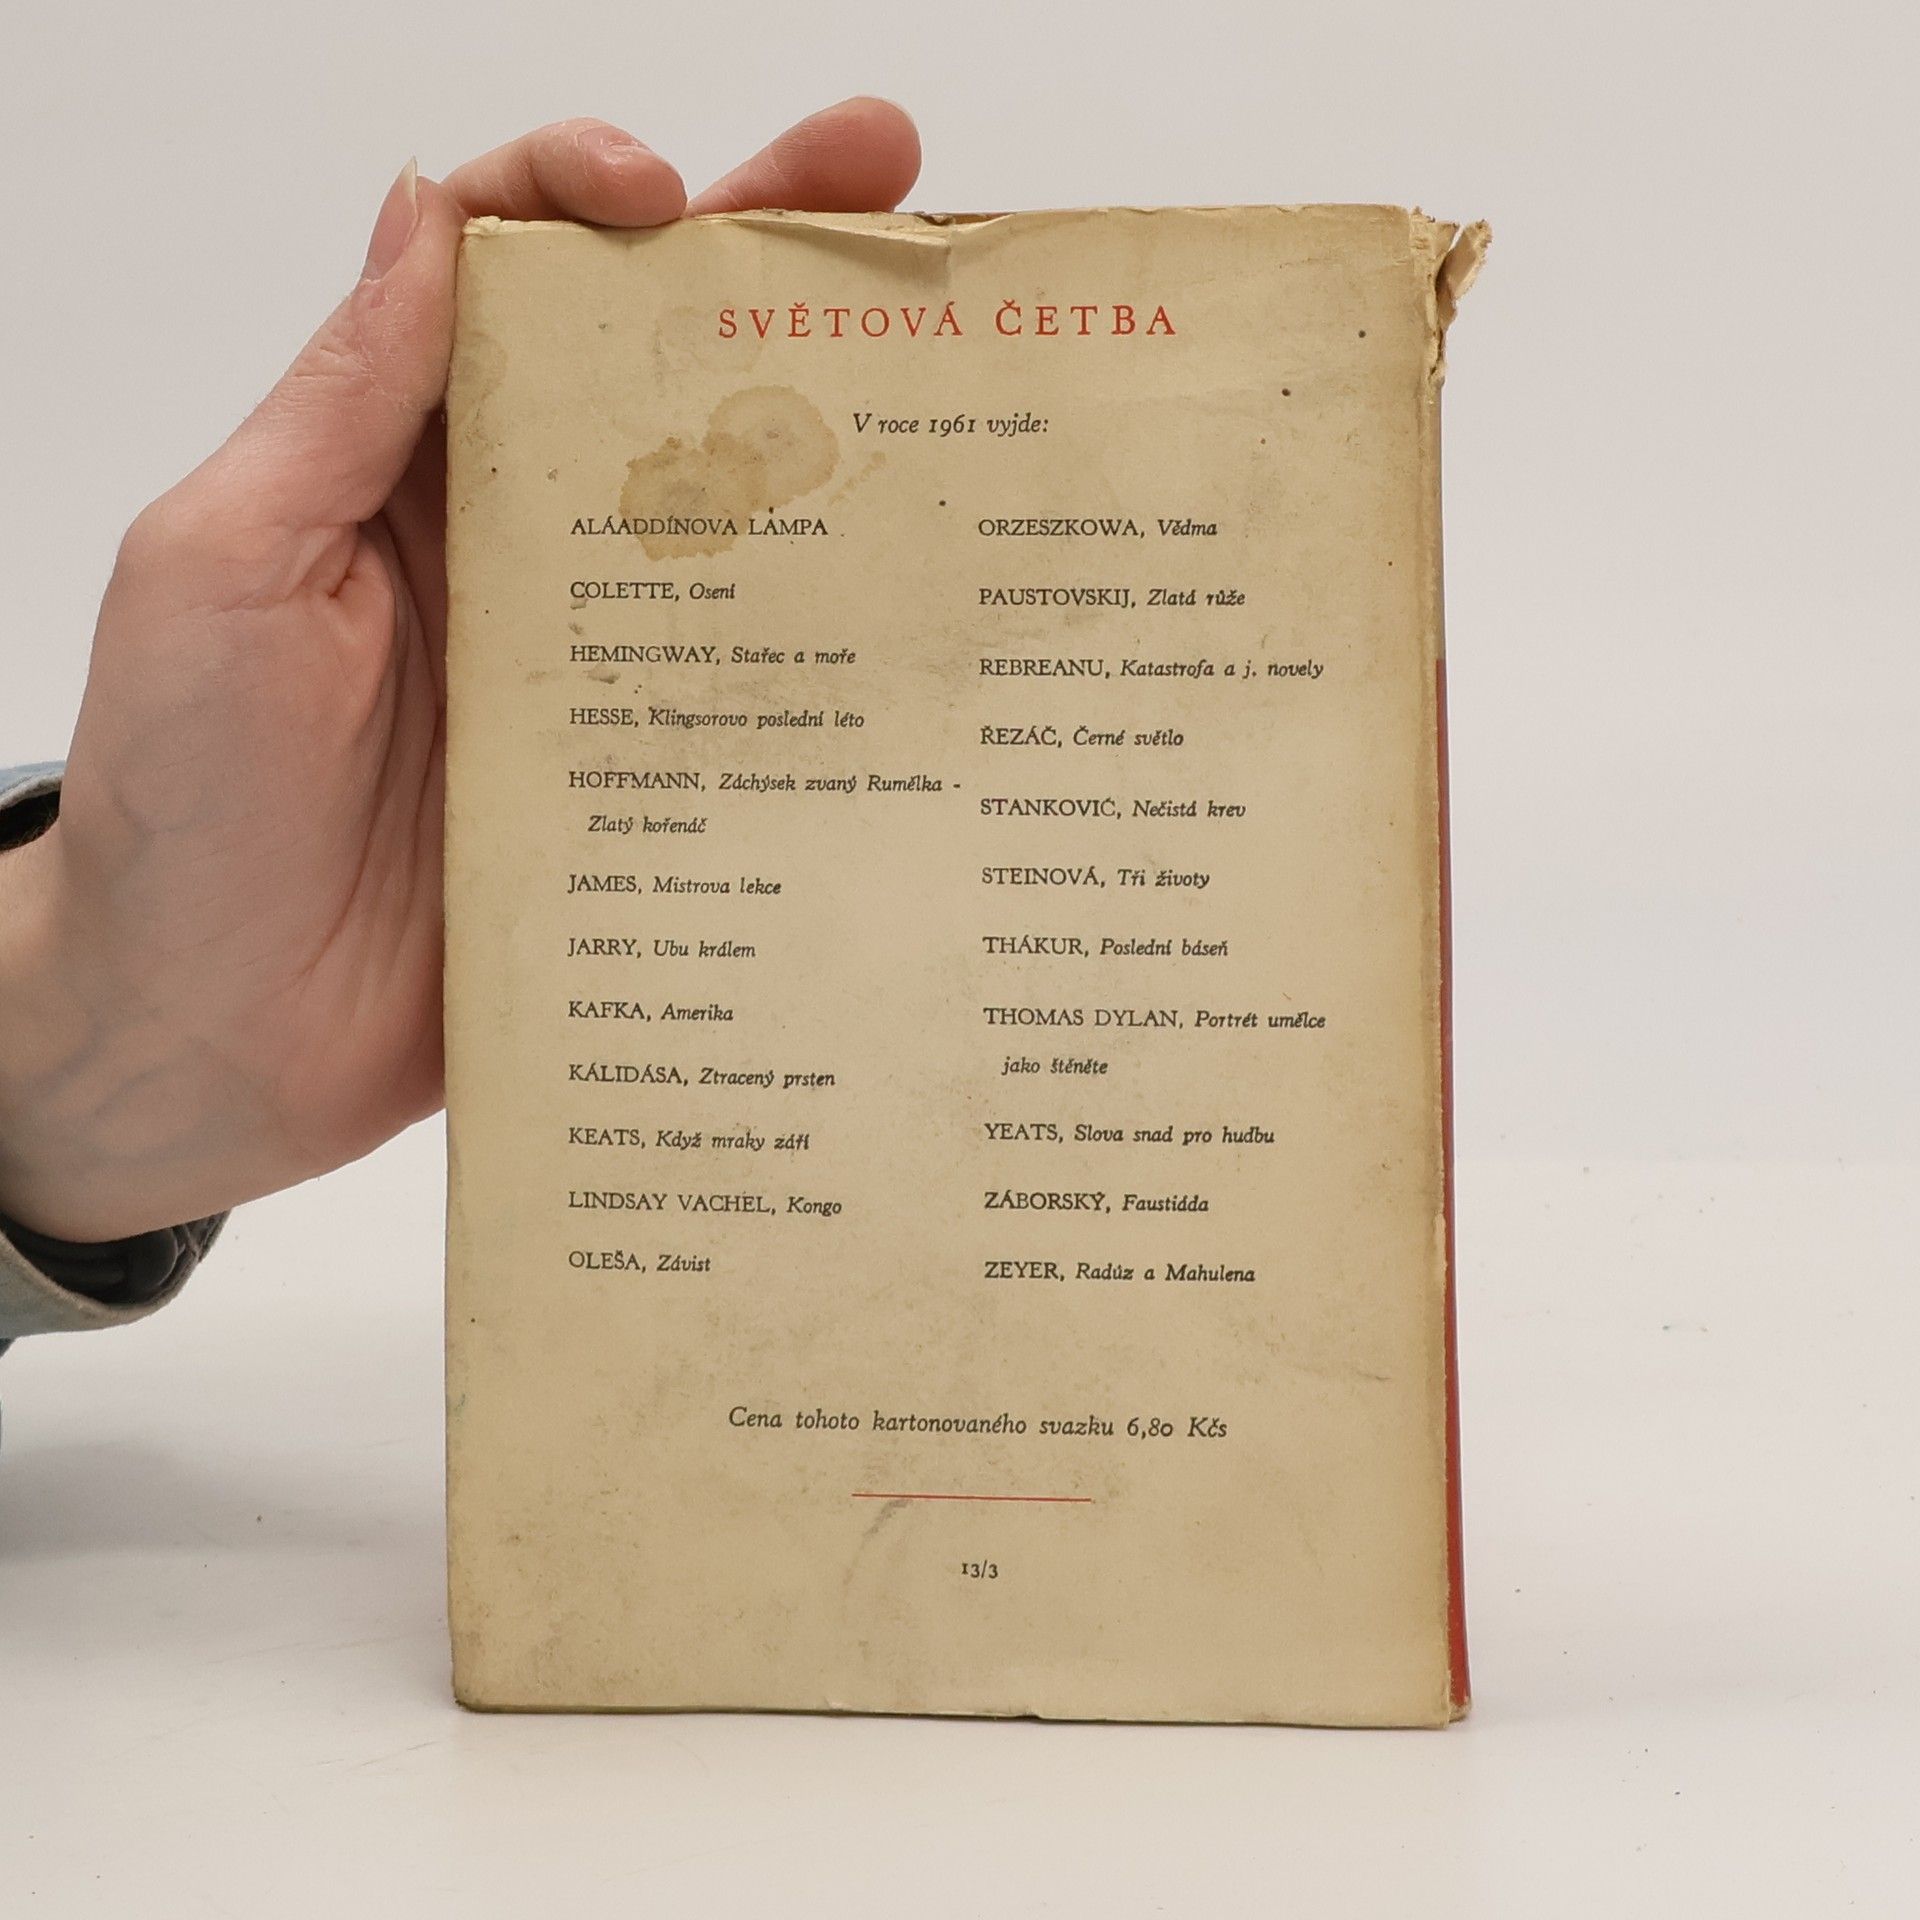 SVĚTOVÁ ČETBA
V roce 1961 vyjde:
ALÁADDÍNOVA LAMPA
COLETTE, Osení
HEMINGWAY, Stařec a moře
HESSE, Klingsorovo poslední léto
HOFFMANN, Záchýsek zvaný Rumělka -
Zlatý kořenáč
JAMES, Mistrova lekce
JARRY, Ubu králem
KAFKA, Amerika
KÁLIDÁSA, Ztracený prsten
KEATS, Když mraky září
LINDSAY VACHEL, Kongo
OLEŠA, Závist
ORZESZKOWA, Vědma
PAUSTOVSKIJ, Zlatá růže
REBREANU, Katastrofa a j. novely
ŘEZÁČ, Černé světlo
STANKOVIĆ, Nečistá krev
STEINOVÁ, Tři životy
THÁKUR, Poslední báseň
THOMAS DYLAN, Portrét umělce
jako štěněte
YEATS, Slova snad pro hudbu
ZÁBORSKÝ, Faustiáda
ZEYER, Radúz a Mahulena
Cena tohoto kartonovaného svazku 6,80 Kčs
13/3